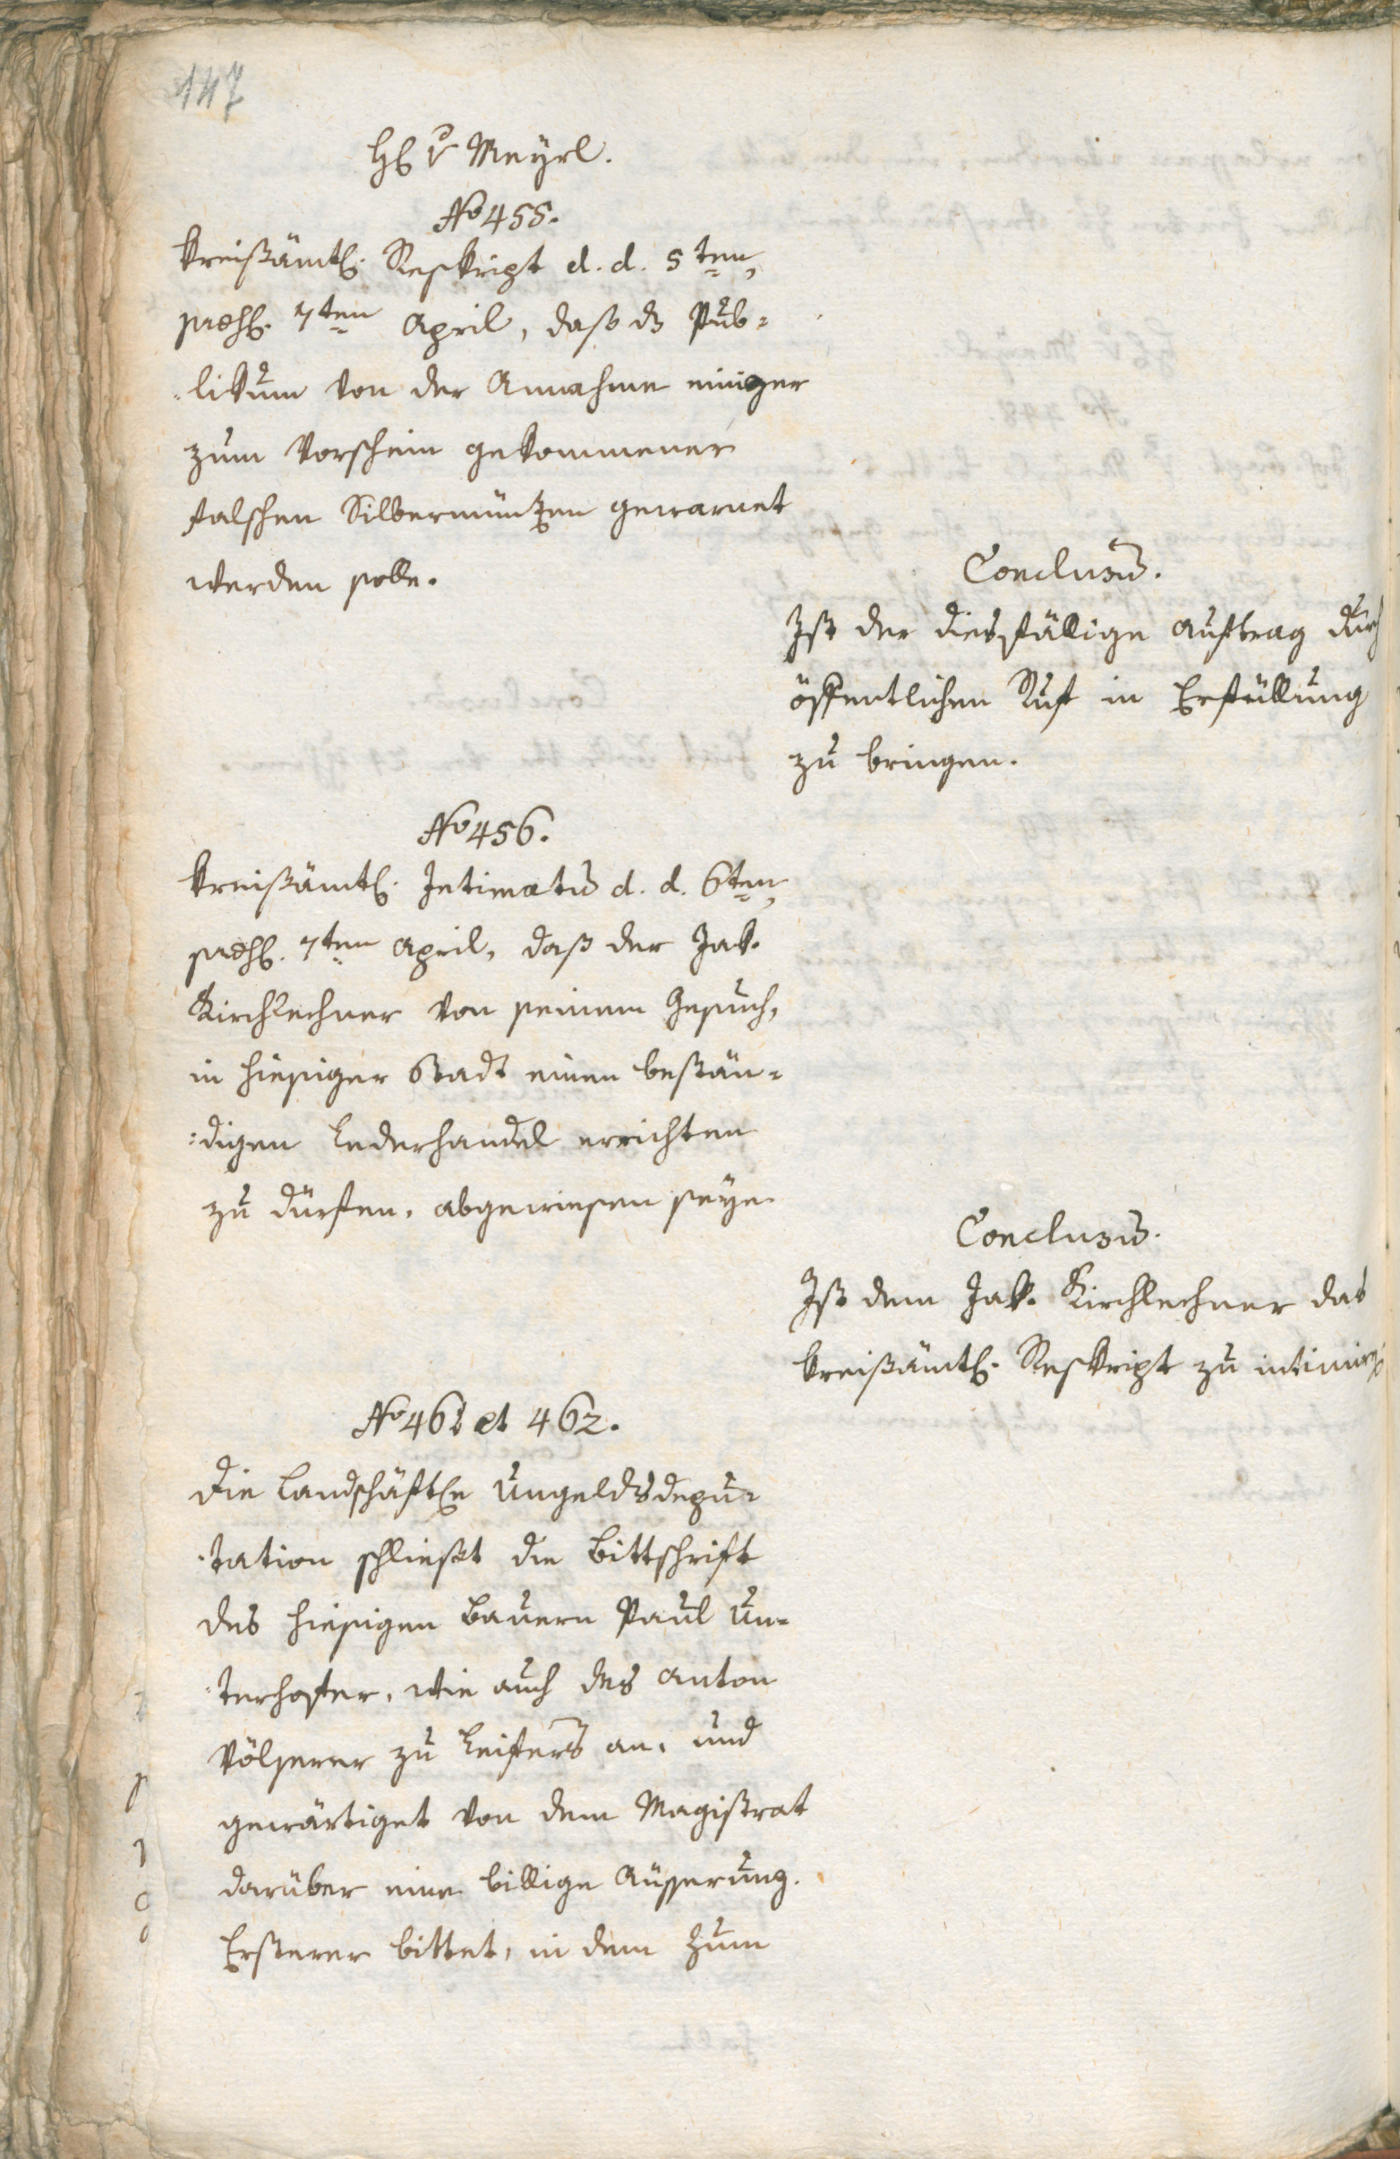 147
H: v Meyrl.
No 455.
Kreißämtl: Reskript d. d. 5ten,
praes: 7ten April, daß ds Pub=
likum von der Annahme einiger
zum Vorschein gekommener
falschen Silbermüntzen gewarnet
werden solle.
Conclusũ.
Ist der diesfällige Auftrag durch
öffentlichen Ruf in Erfüllung
zu bringen.
No 456.
Kreißämtl: Intimatũ d. d. 6ten,
praes: 7ten April, daß der Jak.
Kirchlechner von seinem Gesuch,
in hiesiger Stadt einen bestän=
:digen Lederhandel errichten
zu dürfen, abgewiesen seye.
Conclusũ.
Ist dem Jak. Kirchlechner das
kreißämtl: Reskript zu intimirn
No 461 et 462.
Die Landschäftle Ungeldsdepu=
:tation schließt die Bittschrift
des hiesigen Bauern Paul Un=
:terhofer, wie auch des Anton
Völserer zu Leifers an, und
gewärtiget von dem Magistrat
darüber eine billige Äusserung.
Ersterer bittet, in dem zum